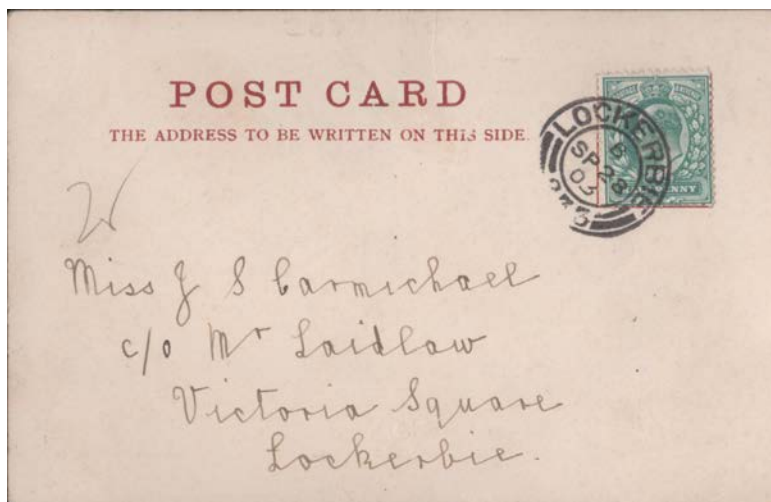 POST CARD
THE ADDRESS TO BE WRITTEN ON THIS SIDE.
LOCKERBIE
SP 28
03
Miss J S Carmichael
c/o Mr Laidlaw
Victoria Square
Lockerbie.